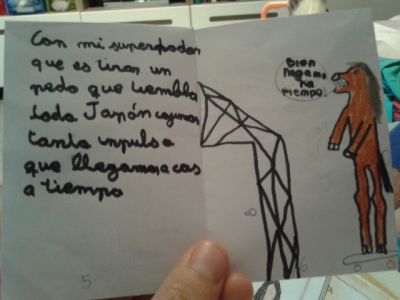 Con mi superpoder
que es tirar un
pedo que tiembla
toda Japón cojimos
tanto inpulso
que llegamos a cas
a tiempo
5
Bien
llegamos
ha
tiempo